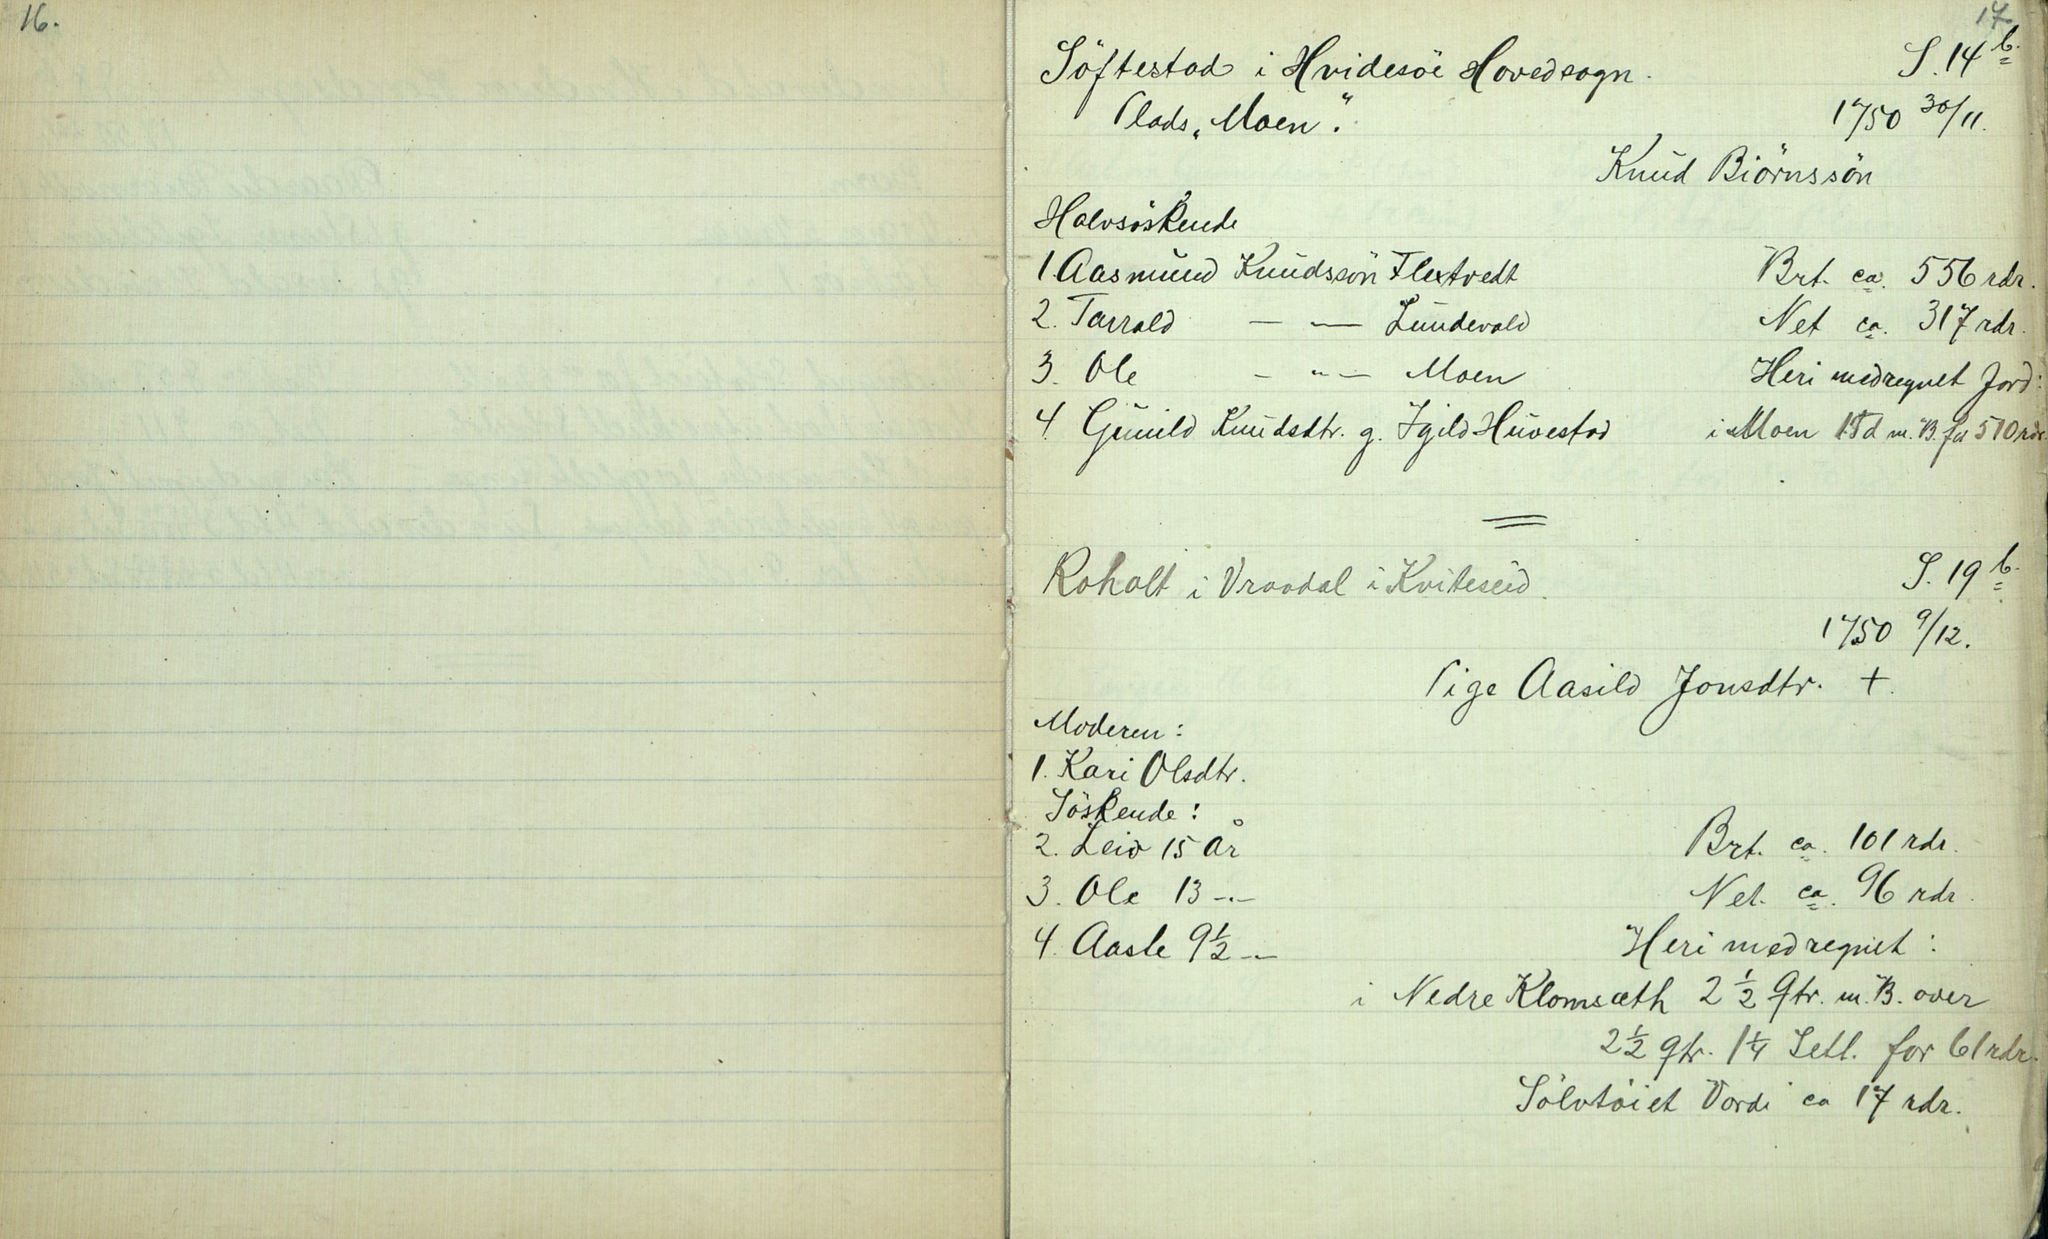 16.
17.
Söftestad i Hvidesöe Hovedsogn. S. 14 b.
Plads „Moen". 1750 30/11.
Knud Biörnssön
Halvsöskende
1. Aasmund Knudssön Flextvedt Brt. ca. 556 rdr.
2. Tarrald — " — Lundevald Net ca. 317 rdr.
3. Ole — " — Moen Heri medregnet Jord:
4. Gunild Knudsdtr. g. Igild Huvestad i Moen 15d m. B. for 510 rdr.
Roholt i Vraadal i Kviteseid. S. 19 b.
1750 9/12.
Pige Aasild Jonsdtr. +.
Moderen:
1. Kari Olsdtr.
Söskende:
2. Leid 15 år Brt. ca. 101 rdr.
3. Ole 13 -"- Net. ca. 96 rdr.
4. Aasle 9½ -"- Heri medregnet:
i Nedre Klomsæth 2½ Qtr. m. B. over
2½ qtr. 1¼ Setl. for 61 rdr.
Sölvtöiet Værdi ca 17 rdr.